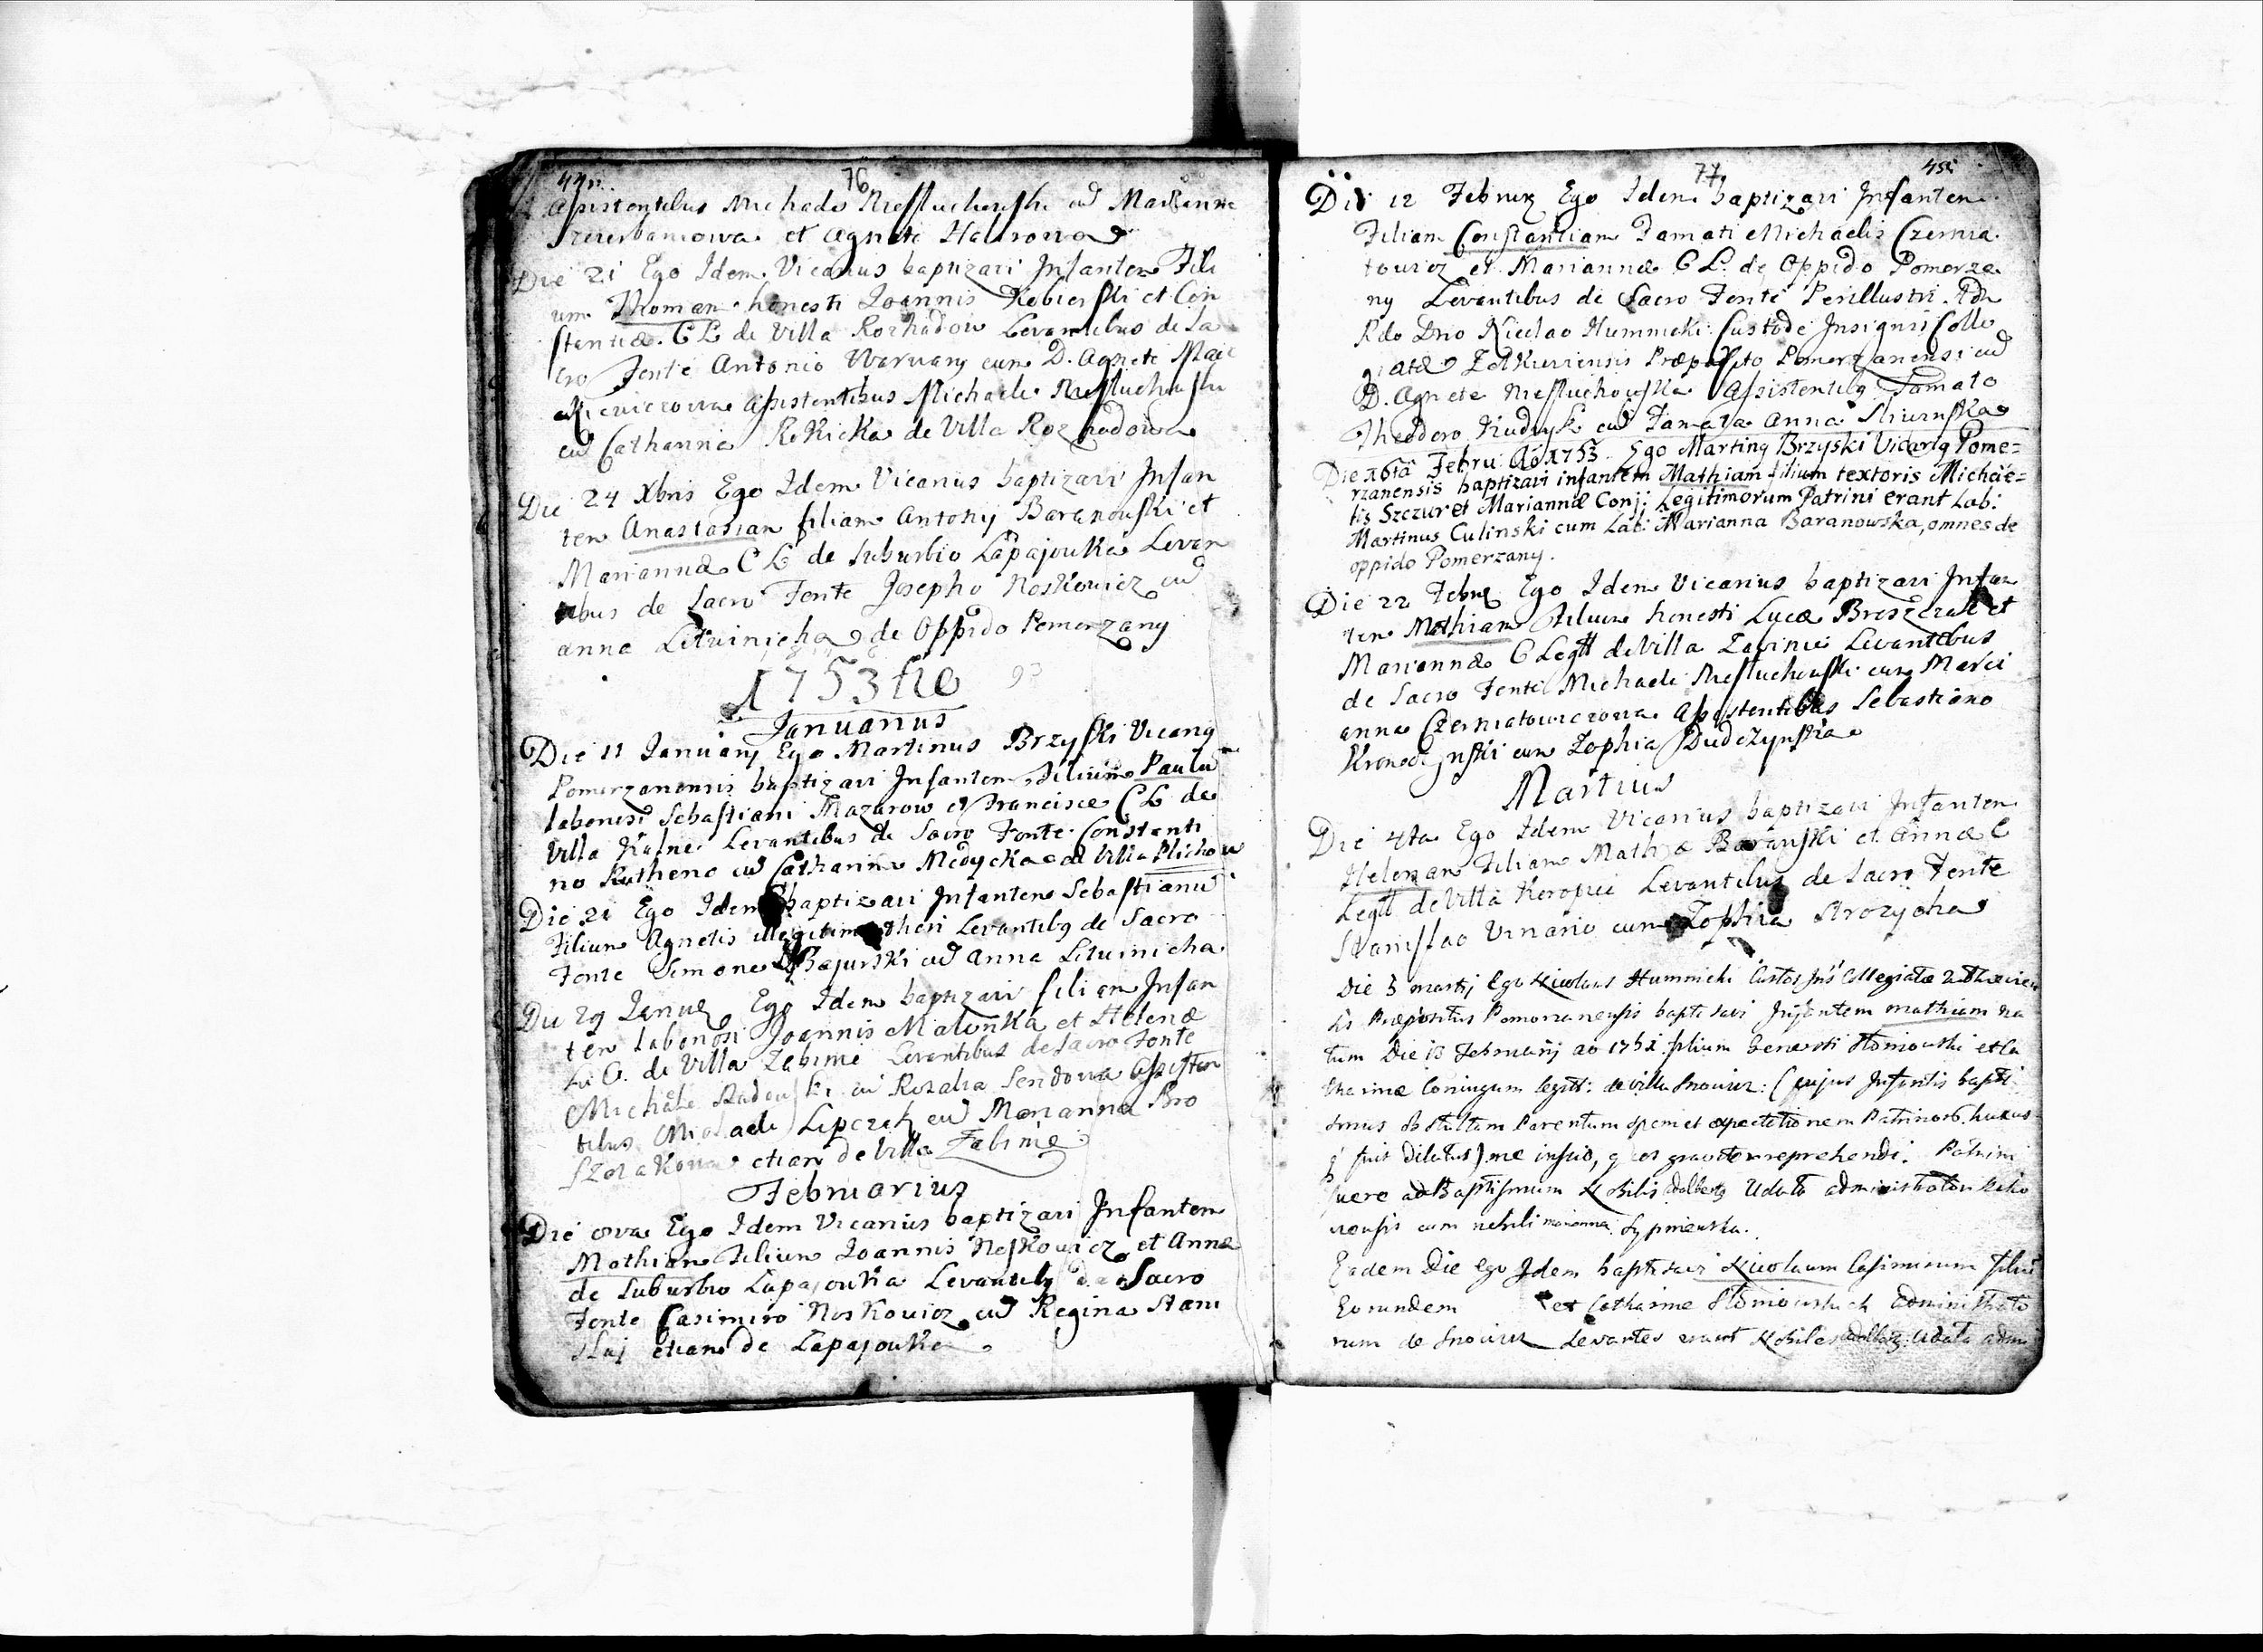 76
Assistentibus Michaele Niesluchowski cū Marianna
et Agnete
Die 21 Ego Idem Vicarius baptizavi Infantem Fili
um Thomam honesti Joannis Kobierski et Con
stantiæ C L de Villa Rozhadow Levantibus de Sa
cro Fonte Antonio Warvany cum D. Agnete
Assistentibus Michaele
cū Catharina Rokicka de Villa Rozhadow
Die 24 Xbris Ego Idem Vicarius baptizavi Infan
tem Anastasiam filiam Antonij Baranowski et
Mariannæ C L de Suburbio Lapajowka Levan
tibus de Sacro Fonte Josepho Noskowicz cū
anna Litwinicha de Oppido Pomorzany
1753
Januarius
Die 11 Januarij Ego Martinus Brzyski Vicarig
Pomorzanensis baptizavi Infantem Filium Paulū
laboriosi Sebastiani Mazurow et Franciscæ C L de
Villa Kalne Levantibus de Sacro Fonte Constanti
no Rutheno cū Catharina Medycka de Villa Plichow
Die 21 Ego Idem baptizavi Infantem Sebastianū
Filium Agnetis illegitimi thori Levantibg de Sacro
Fonte Simone Bajurski cū Anna Lituinicha
Die 29 Janua Ego Idem baptizavi filiam Infan
tem laboriosi Joannis Malonka et Helenæ
L. C. de Villa Zabinie Levantibus de Sacro Fonte
Michaele cū Rozalia Sendowa Assisten
tibus Michaele Lipczak cū Marianna Pro
szorakowa etiam de Villa Zabinie
Februarius
Die Ego Idem Vicarius baptizavi Infantem
Mathiam Filium Joannis Noskowicz et Annæ
de Suburbio Lapajowka Levantibg de Sacro
Fonte Casimiro Noskowicz cū Regina Stani
slaj etiam de Lapajowka
77
Die 12 Februa Ego Idem baptizavi Infantem
Filiam Constantiam Famati Michaelis Czernia
towicz et Mariannæ C L. de Oppido Pomorza
ny Levantibus de Sacro Fonte Perillustri Adm
Rdo Dno Nicolao Hummicki Custode Insignis Colle
giatæ Præposito Pomorzanensi cū
D. Agnete Niesluchowska Assistentibg Famato
Theodoro Kudryk cū Famata Anna
Die 16tâ Febru: Aõ 1753. Ego Marting Brzyski Vicarig Pome=
rzanensis baptizavi infantem Mathiam filium textoris Michae=
lis Szczur et Mariannæ Conj: Legitimorum Patrini erant Lab:
Martinus Culinski cum Lab: Marianna Baranowska, omnes de
oppido Pomerzany.
Die 22 Febr Ego Idem Vicarius baptizavi Infan
tem Mathiam Filium honesti Lucæ Broszczak et
Mariannæ C Legtt de Villa Zabinie Levantibus
de Sacro Fonte Michaele Niesluchowski cum Mari
anna Czerniatowiczowa Assistentibus Sebastiano
cum Zophia Dudczynska
Martius
Die 4ta Ego Idem Vicarius baptizavi Infantem
Helenam Filiam Mathiæ Baranski et Annæ C
Legtt de Villa Koropie Levantibus de Sacro Fonte
Stanislao Vinario cum Zophia
Die 5 martij Ego Nicolaus Hummicki Custos Collegiatæ
sis Præpositus Pomorzanensis baptisavi Infantem mathiam na
tum Die Februarij ao filium Generosi et Ca
tharinæ Coniugum legtt: de villa (cujus Infantis bapti
smus ob stultam Parentum spem et expectationem Patrinorū hucus
q fuit dilatus) me inscio, q et graviter reprehendi. Patrini
fuere ad Baptismum Nobilis Adalbertg Udata administrator
cum nobili marianna
Eadem Die ego Idem baptisavi Nicolaum Casimirum Filiū
Eorundem et Catharinæ administrato
rum de Levantes erant Nobiles Adalbertg Udata admi